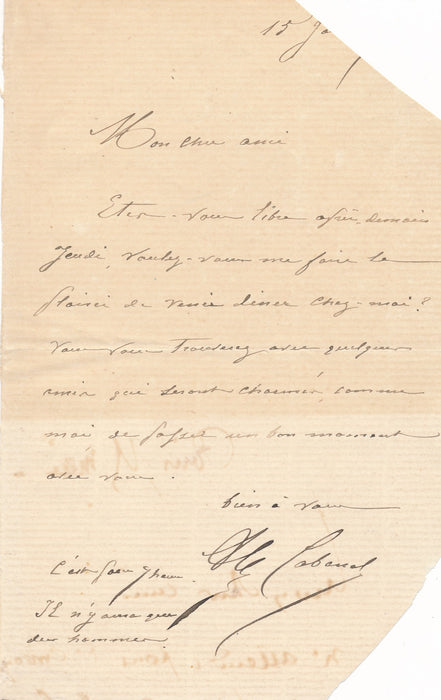 15 Ja
Mon cher ami
Etes-vous libre après-demain
Jeudi, voulez-vous me faire le
plaisir de venir diner chez-moi?
vous vous trouverez avec quelques
amis qui seront charmés, comme
moi de passer un bon moment
avec vous.
bien à vous
Alex Cabanel
C'est pour 7 heures
Il n'y aura que
des hommes